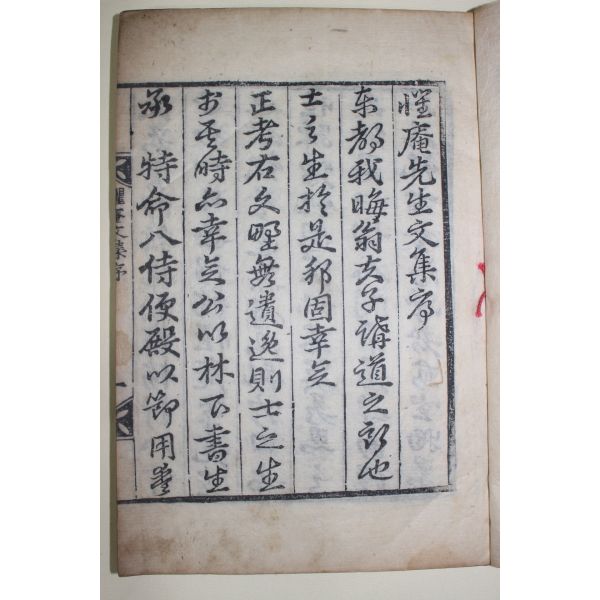 懼庵先生文集序
東都我晦翁夫子講道之也
士之生於是邦固幸矣
正考右文野無遺逸則士之生
於其時亦幸矣公以林下書生
承 特命入侍便殿以節用愛
懼庵文集序 一